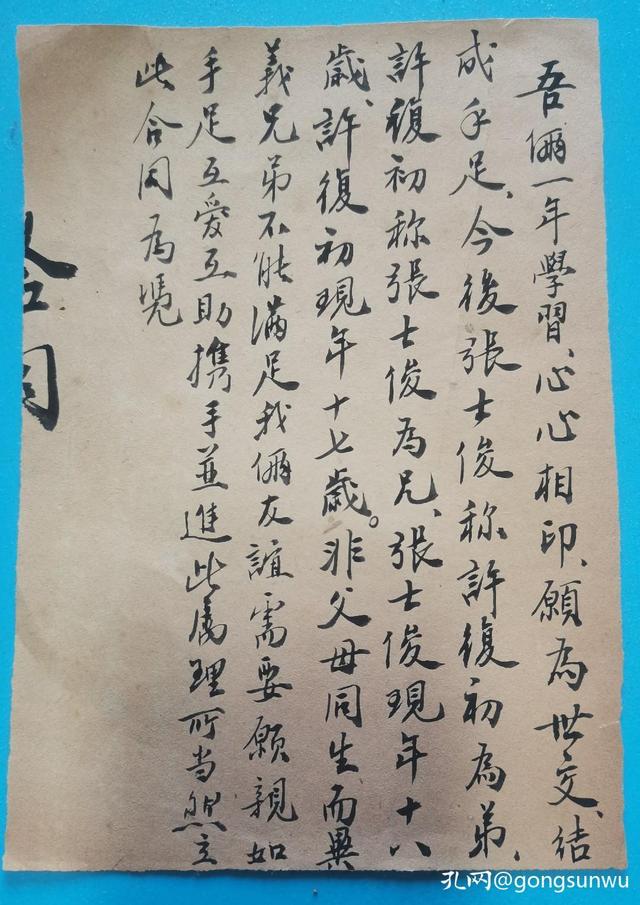 吾倆一年學習、心心相印、願為世交、结
成手足、今後張士俊称許復初為弟、
許復初称張士俊為兄、張士俊現年十八
歲、許復初現年十七歲。非父母同生而異
義兄弟不能滿足我倆友誼需要願親如
手足互爱互助携手並進此属理所当然立
此合同為凴
合同
孔网@gongsunwu